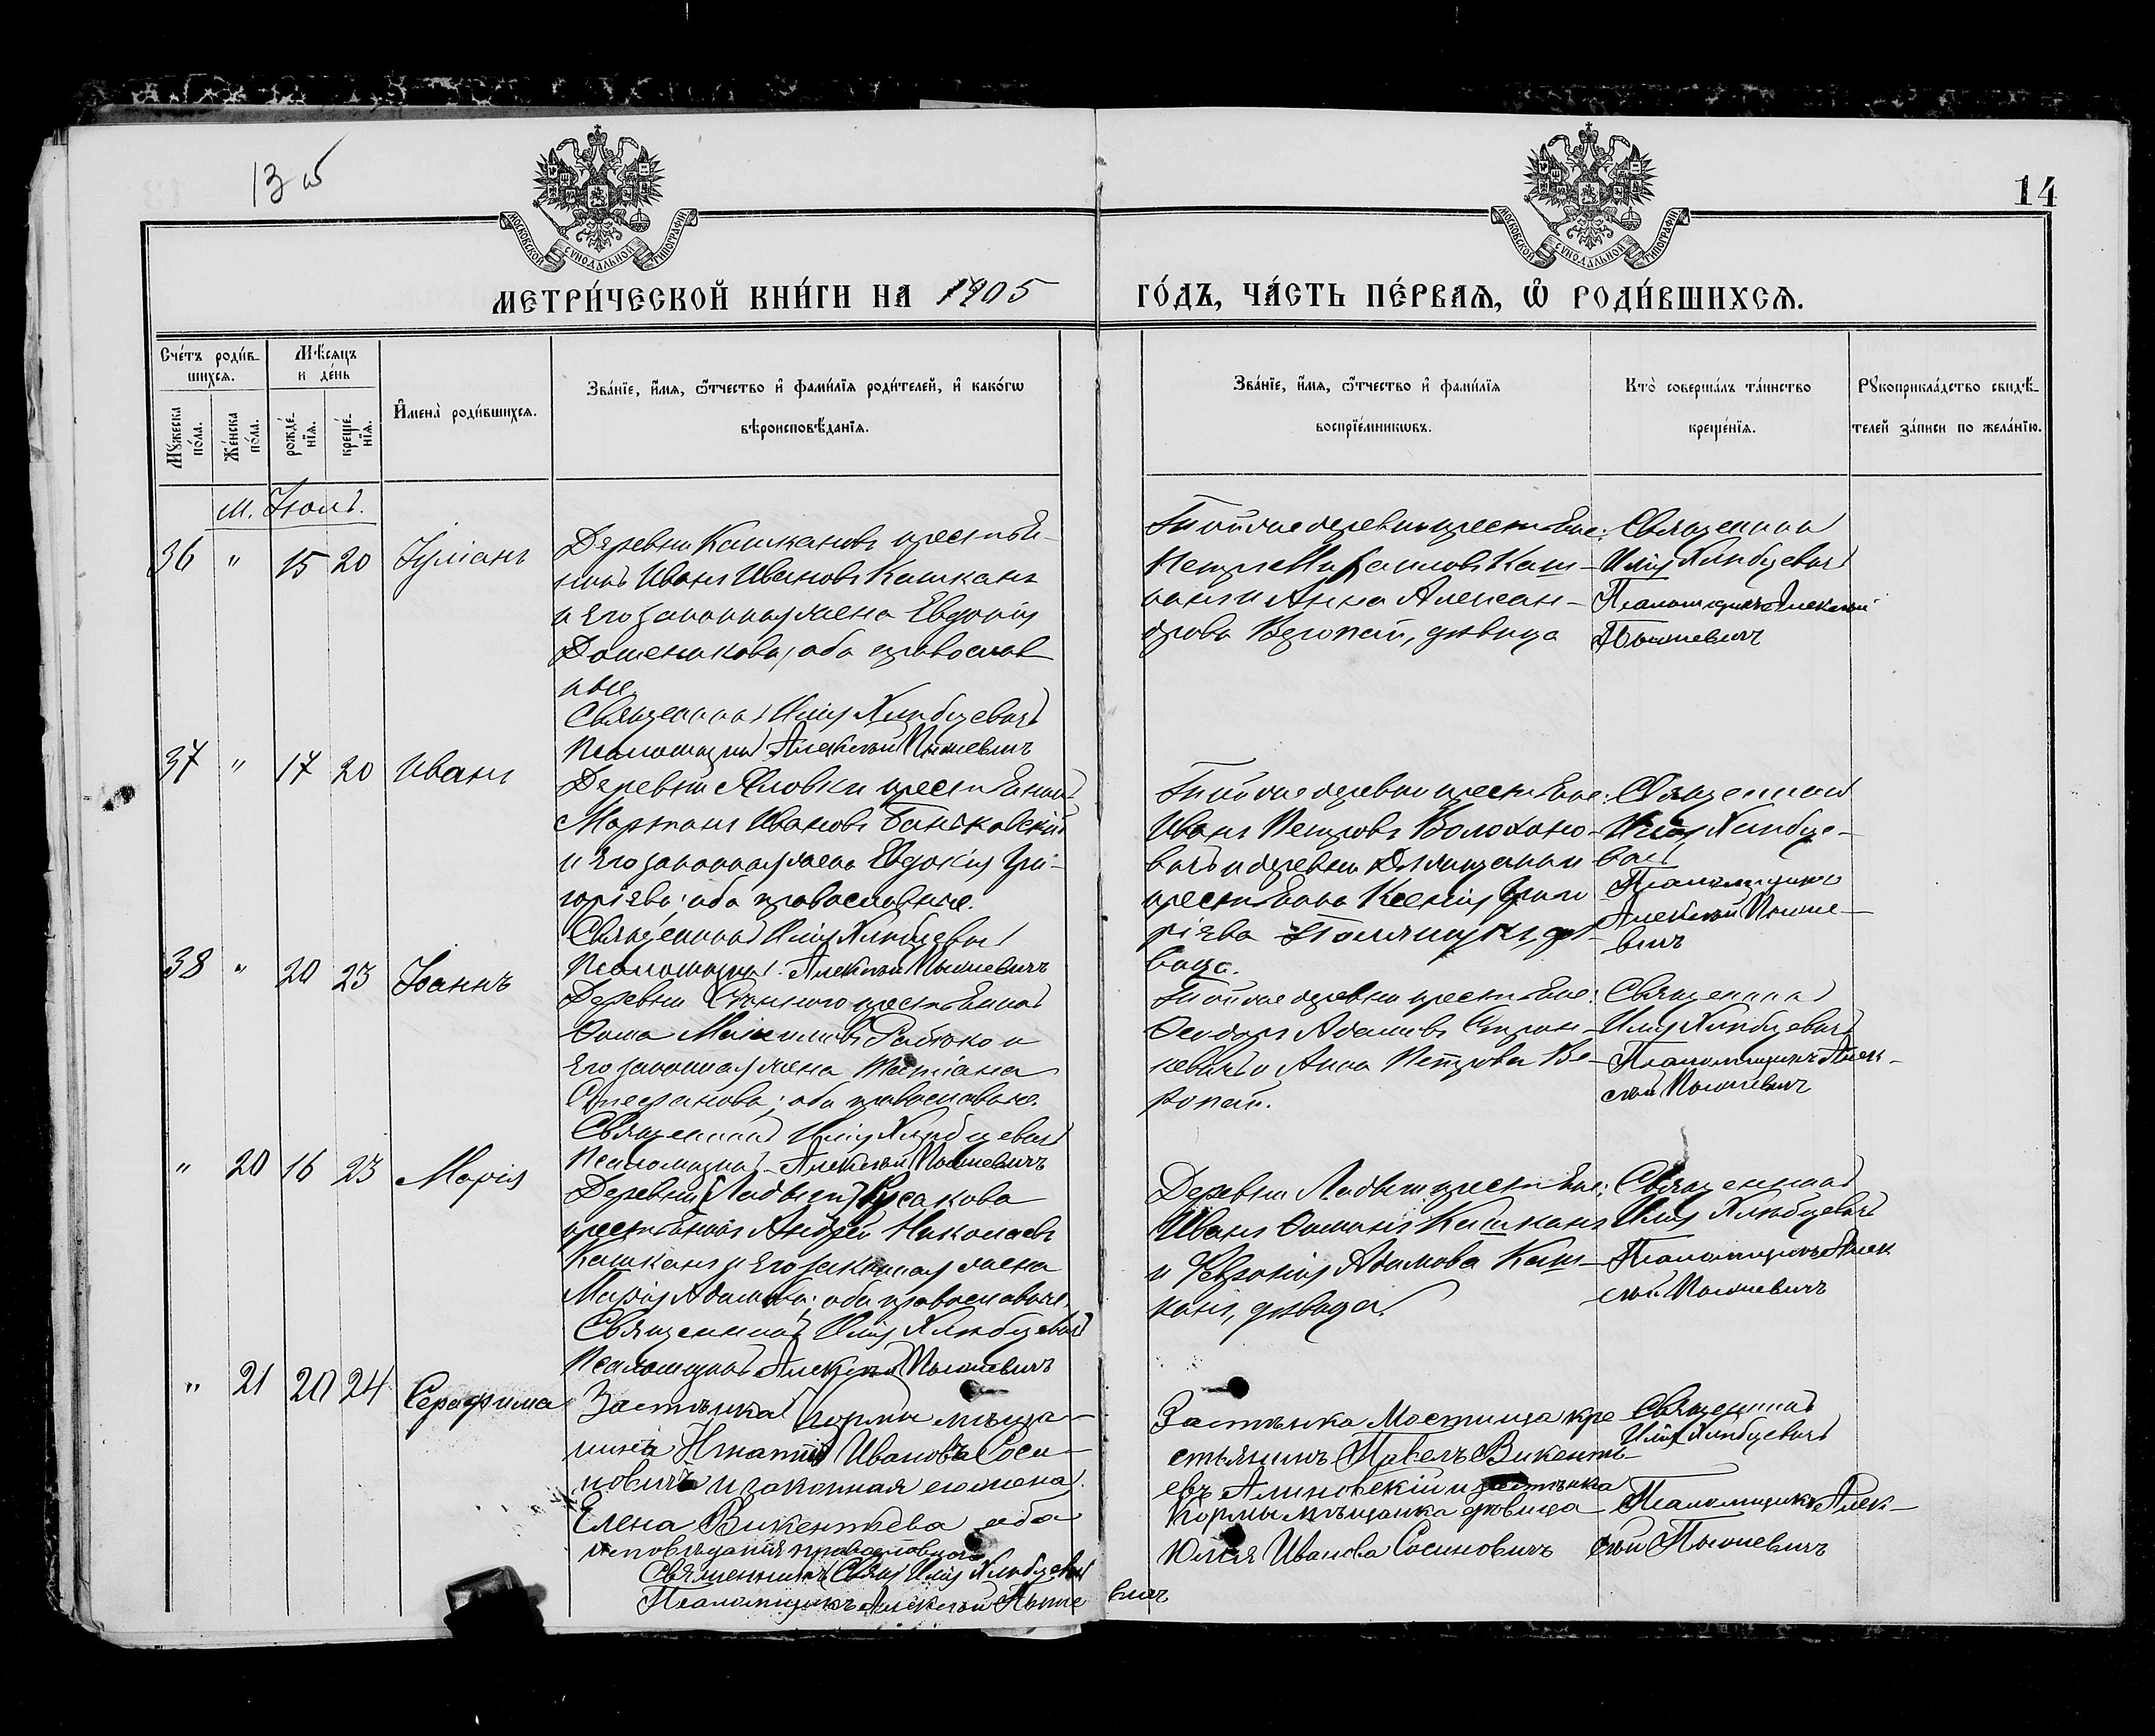 13 об
14
МОСКОВСКОЙ СѴНОДАЛЬНОЙ ТИПОГРАФІИ
МОСКОВСКОЙ СѴНОДАЛЬНОЙ ТИПОГРАФІИ
МЕТРИ́ЧЕСКОЙ КНИ́ГИ НА 1905 ГО́ДЪ, ЧА́СТЬ ПЕ́РВАѦ, Ѡ҆ РОДИ́ВШИХСѦ.
Сче́тъ роди́в-
шихсѧ.
Мѣ́сѧцъ
и де́нь
Мꙋ́жеска
по́ла.
Же́нска
по́ла.
рожде́-
нїѧ.
креще́-
нїѧ.
И҆мена̀ роди́вшихсѧ.
Зва́нїе, и҆́мѧ, ѻ҆́тчество и҆ фами́лїѧ роди́телей, и҆ како́гѡ
вѣроисповѣ́данїѧ.
Зва́нїе, и҆́мѧ, ѻ҆́тчество и҆ фами́лїѧ
воспрїе́мникѡвъ.
Кто̀ соверша́лъ та́инство
креще́нїѧ.
Рꙋкоприкла́дство свидѣ́-
телей за́писи по жела́нїю.
м. Іюль.
36 " 15 20 Іуліанъ
Деревни Кашканов крестья-
нинъ Иванъ Ивановъ Кашканъ
и его законная жена Евдокія
оба православ-
ные.
Священникъ Илія Хлюбцевичъ
Псаломщикъ Алексѣй Пышневичъ
Той же деревни крестьяне:
Петръ Михаиловъ Каш-
канъ и Анна Алексан-
дрова дѣвица
Священникъ
Илія Хлюбцевичъ
Псаломщикъ Алексѣй
Пышневичъ
37 " 17 20 Иванъ
Деревни Яловки крестьянинъ
Мартинъ Ивановъ Баньковскій
и его законная жена Евдокія Гри-
горіева; оба православные.
Священникъ Илія Хлюбцевичъ
Псаломщикъ Алексѣй Пышневичъ
Той же деревни крестьяне:
Иванъ Петровъ Волохано-
вичъ и деревни
крестьянка Ксенія Григо
ріева дѣ-
вица.
Священникъ
Илія Хлюбце-
вичъ
Псаломщикъ
Алексѣй Пышне-
вичъ
38 " 20 23 Іоаннъ
Деревни крестьянинъ
Ѳома Рабѣюко и
его законная жена Татіана
Стефанова; оба православные.
Священникъ Илія Хлюбцевичъ
Псаломщикъ Алексѣй Пышневичъ
Той же деревни крестьяне:
Ѳеодоръ Адамовъ
и Анна Петрова Ве-
Священникъ
Илія Хлюбцевичъ
Псаломщикъ Алек-
сѣй Пышневичъ
" 20 16 23 Марія
Деревни Русакова
крестьянинъ Андрей Николаевъ
Кашканъ и его законная жена
Марія Адамова; оба православные.
Священникъ Илія Хлюбцевичъ
Псаломщикъ Алексѣй Пышневичъ
Деревни крестьяне:
Иванъ Кашканъ
и Февронія Адамова Каш-
канъ, дѣвица.
Священникъ
Илія Хлюбцевичъ
Псаломщикъ Алек
сѣй Пышневичъ
" 21 20 24 Серафима
Застѣнка Кормы мѣща-
нинъ Игнатій Ивановъ Соси-
новичъ и законная его жена
Елена Викентьева оба
исповѣданія православнаго
Священникъ Илія Хлюбцевичъ
Псаломщикъ Алексѣй Пышне вичъ
Застѣнка Мостища кре-
стьянинъ Павелъ Викенть-
евъ Алиновскій и застѣнка
Кормы мѣщанка дѣвица
Юлія Иванова Сосиновичъ
Священникъ
Илія Хлюбцевичъ
Псаломщикъ Алек-
сѣй Пышневичъ